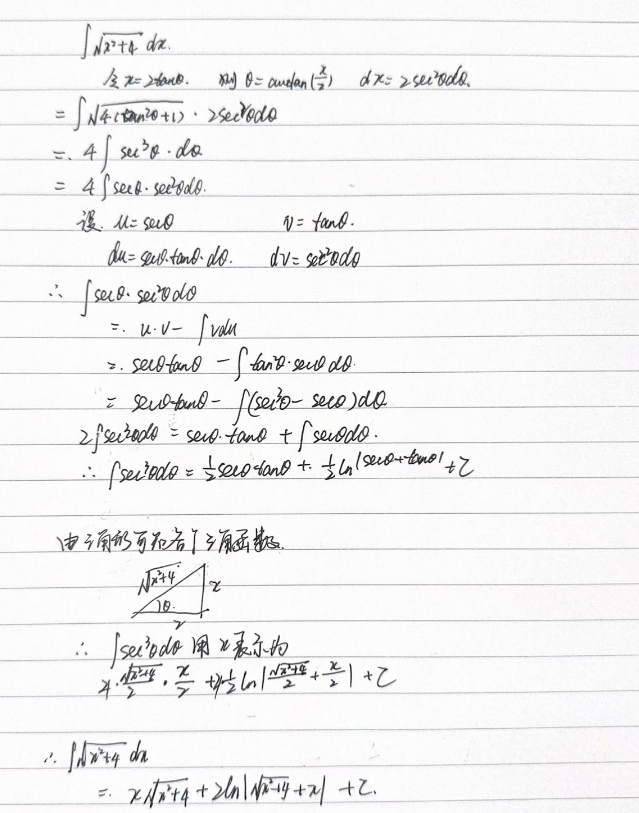 ∫√(x²+4) dx.
令 x=2tanθ. 则 θ=arctan(x/2) dx=2sec²θdθ.
= ∫√(4(tan²θ+1)) · 2sec²θdθ
=. 4∫ sec³θ · dθ
= 4∫secθ · sec²θdθ.
设. u=secθ v=tanθ.
du=secθ·tanθ·dθ. dv=sec²θdθ
∴ ∫secθ·sec²θdθ
=. u·v - ∫vdu
=. secθtanθ - ∫tan²θ·secθdθ.
= secθtanθ - ∫(sec³θ - secθ)dθ
2∫sec³θdθ = secθ·tanθ + ∫secθdθ.
∴ ∫sec³θdθ = 1/2 secθtanθ + 1/2 ln|secθ+tanθ| + C
由三角形可知各个三角函数.
√(x²+4) x
θ.
2
∴ ∫sec³θdθ 用x表示为
· √(x²+4)/2 · x/2 + 1/2 ln|√(x²+4)/2 + x/2| + C
∴ ∫√(x²+4) dx
=. x√(x²+4) + 2ln|√(x²+4)+x| + C.